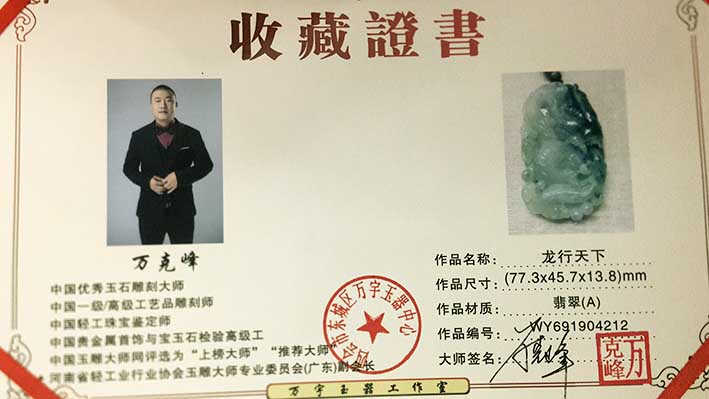 收藏證書
万克峰
中国优秀玉石雕刻大师
中国一级/高级工艺品雕刻师
中国轻工珠宝鉴定师
中国贵金属首饰与宝玉石检验高级工
中国玉雕大师网评选为“上榜大师”“推荐大师”
河南省轻工业行业协会玉雕大师专业委员会(广东)副会长
四会市东城区万字玉器中心
作品名称: 龙行天下
作品尺寸: (77.3x45.7x13.8)mm
作品材质: 翡翠(A)
作品编号: WY691904212
大师签名:
万克峰
万字玉器工作室